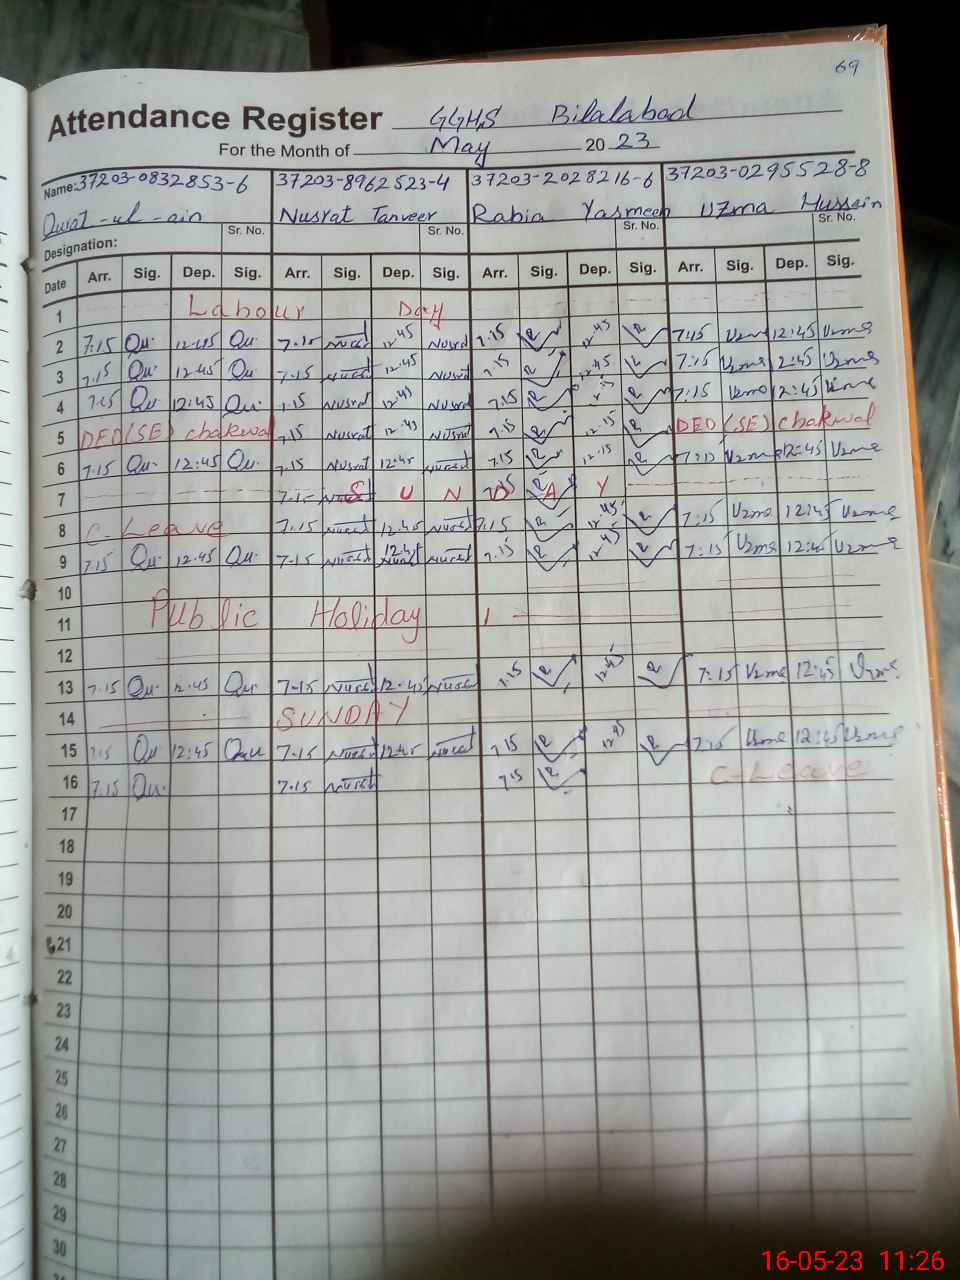 69
Attendance Register GGHS Bilalabad
For the Month of May 20 23
Name: 37203-0832853-6 37203-8962523-4 37203-2028216-6 37203-0295528-8
Qurat-ul-ain Nusrat Tanveer Rabia Yasmeen Uzma Hussain
Designation: Sr. No. Sr. No. Sr. No. Sr. No.
Date Arr. Sig. Dep. Sig. Arr. Sig. Dep. Sig. Arr. Sig. Dep. Sig. Arr. Sig. Dep. Sig.
1 Labour Day
2 7.15 Qu. 12:45 Qu. 7.15 12.45 7.15 R 12.45 R 7:15 12:45
3 7.15 Qu. 12:45 Qu. 7.15 12.45 7.15 R 12.45 R 7:15 2:45
4 7.15 Qu 12:45 Qu. 7.15 Nusrat 12.45 7.15 R R 7:15 12:45
5 DEO(SE) chakwal 7.15 Nusrat 12.45 7.15 R 12.15 R DEO (SE) chakwal
6 7.15 Qu. 12:45 Qu. 7.15 Nusrat 12.45 7.15 R 12.15 R 7:15 12:45
7 7.15 S U N D A Y
8 C-Leave 7.15 12.45 7.15 R 12.45 R 7:15 12:45
9 7.15 Qu. 12.45 Qu. 7.15 12.45 7.15 R 12.45 R 7:15 12:45
10
11 Public Holiday
12
13 7.15 Qu. 12.45 Qu. 7.15 12.45 7.15 R 12.45 R 7:15 12:45
14 SUNDAY
15 7.15 Qu 12:45 Qu 7.15 12.45 7.15 R 12.45 R 7.15 12:45
16 7.15 Qu. 7.15 7.15 R C-Leave
17
18
19
20
21
22
23
24
25
26
27
28
29
30
16-05-23 11:26